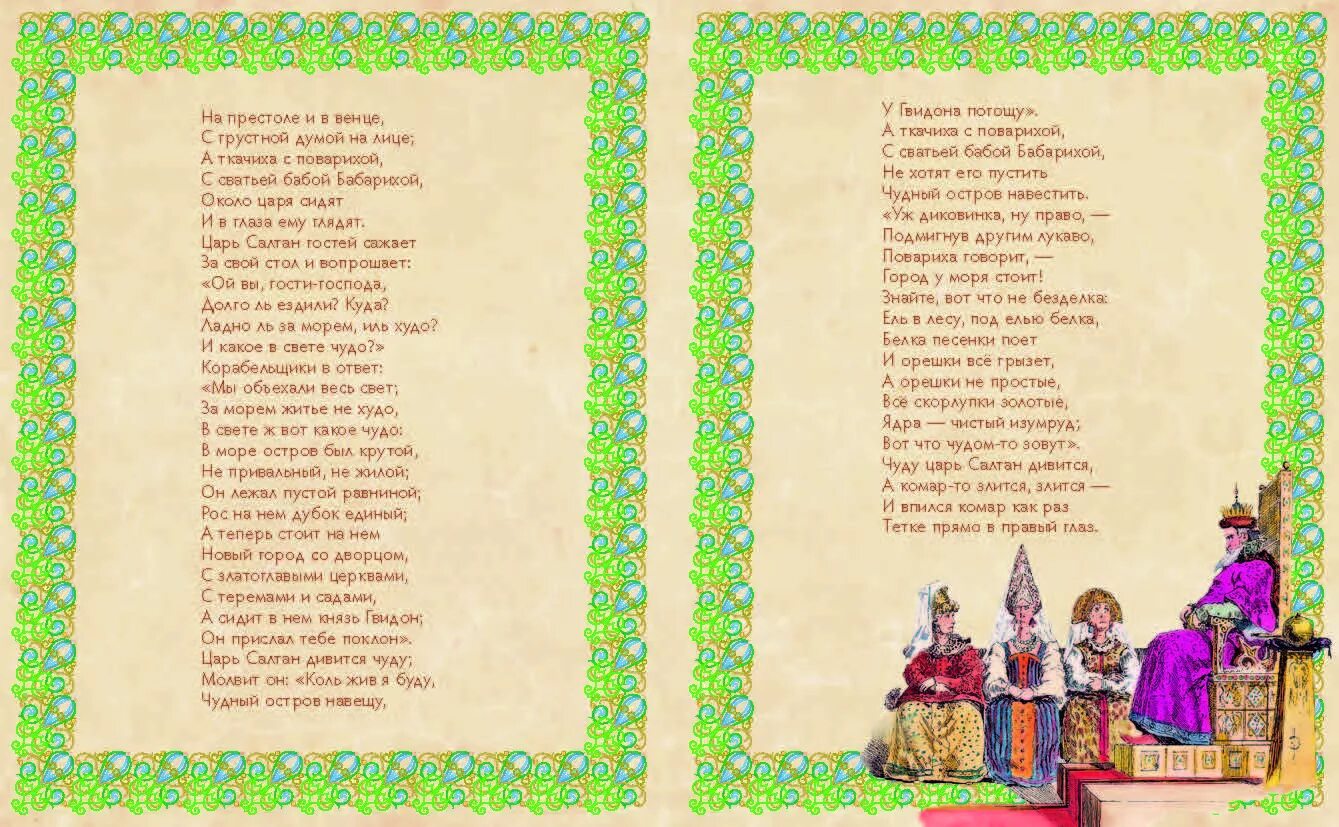 На престоле и в венце,
С грустной думой на лице;
А ткачиха с поварихой,
С сватьей бабой Бабарихой,
Около царя сидят
И в глаза ему глядят.
Царь Салтан гостей сажает
За свой стол и вопрошает:
«Ой вы, гости-господа,
Долго ль ездили? Куда?
Ладно ль за морем, иль худо?
И какое в свете чудо?»
Корабельщики в ответ:
«Мы объехали весь свет;
За морем житье не худо,
В свете ж вот какое чудо:
В море остров был крутой,
Не привальный, не жилой;
Он лежал пустой равниной;
Рос на нем дубок единый;
А теперь стоит на нем
Новый город со дворцом,
С златоглавыми церквами,
С теремами и садами,
А сидит в нем князь Гвидон;
Он прислал тебе поклон».
Царь Салтан дивится чуду;
Молвит он: «Коль жив я буду,
Чудный остров навещу,
У Гвидона погощу».
А ткачиха с поварихой,
С сватьей бабой Бабарихой,
Не хотят его пустить
Чудный остров навестить.
«Уж диковинка, ну право, —
Подмигнув другим лукаво,
Повариха говорит, —
Город у моря стоит!
Знайте, вот что не безделка:
Ель в лесу, под елью белка,
Белка песенки поет
И орешки всё грызет,
А орешки не простые,
Всё скорлупки золотые,
Ядра — чистый изумруд;
Вот что чудом-то зовут».
Чуду царь Салтан дивится,
А комар-то злится, злится —
И впился комар как раз
Тетке прямо в правый глаз.